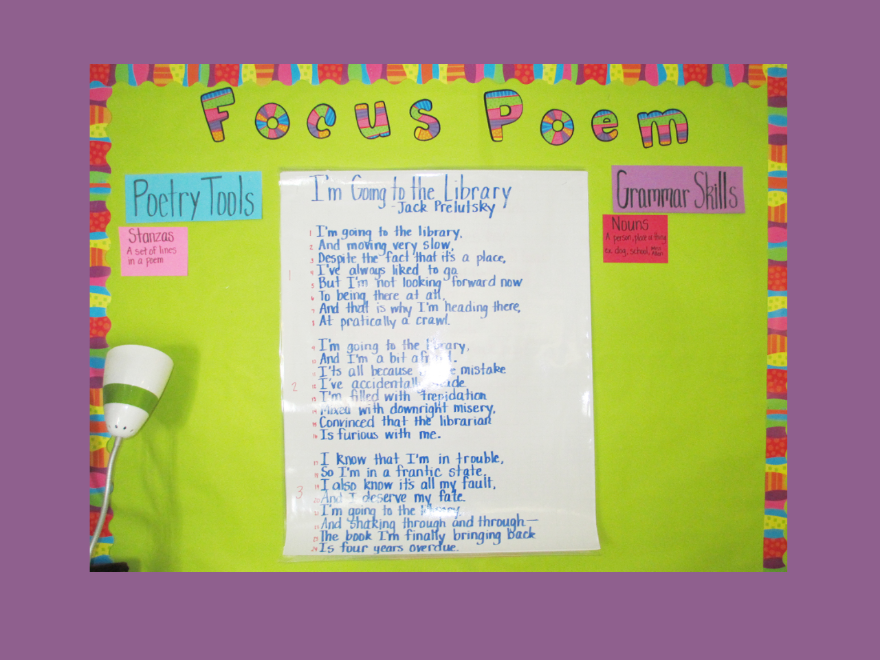 Focus Poem
Poetry Tools
Stanzas
A set of lines
in a poem
I'm Going to the Library
-Jack Prelutsky
1 I'm going to the library,
2 And moving very slow,
3 Despite the fact that it's a place,
4 I've always liked to go
5 But I'm not looking forward now
6 To being there at all.
7 And that is why I'm heading there,
8 At pratically a crawl.
1
9 I'm going to the library,
10 And I'm a bit afraid.
11 I'ts all because mistake
12 I've accidentally made
13 I'm filled with trepidation
14 Mixed with downright misery,
15 Convinced that the librarian
16 Is furious with me.
2
17 I know that I'm in trouble,
18 So I'm in a frantic state,
19 I also know it's all my fault,
20 And I deserve my fate.
21 I'm going to the library,
22 And shaking through and through—
23 The book I'm finally bringing back
24 Is four years overdue.
3
Grammar Skills
Nouns
A person, place or thing
ex. dog, school,